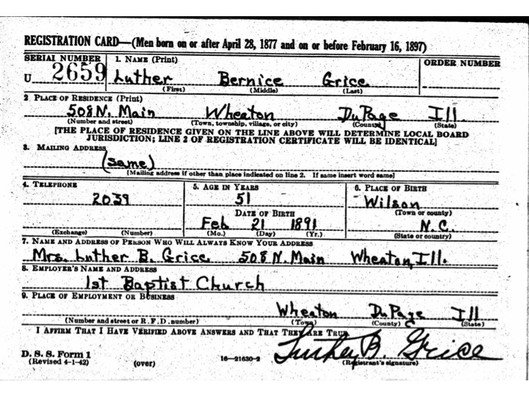 REGISTRATION CARD—(Men born on or after April 28, 1877 and on or before February 16, 1897)
SERIAL NUMBER 1. NAME (Print) ORDER NUMBER
U 2659 Luther Bernice Grice
(First) (Middle) (Last)
2 PLACE OF RESIDENCE (Print)
508 N. Main Wheaton DuPage Ill
(Number and street) (Town, township, village, or city) (County) (State)
[THE PLACE OF RESIDENCE GIVEN ON THE LINE ABOVE WILL DETERMINE LOCAL BOARD
JURISDICTION; LINE 2 OF REGISTRATION CERTIFICATE WILL BE IDENTICAL]
3. MAILING ADDRESS
(same)
[Mailing address if other than place indicated on line 2. If same insert word same]
4. TELEPHONE 5. AGE IN YEARS 6. PLACE OF BIRTH
2039 51 Wilson
DATE OF BIRTH (Town or county)
Feb 21 1891 N.C.
(Exchange) (Number) (Mo.) (Day) (Yr.) (State or country)
7. NAME AND ADDRESS OF PERSON WHO WILL ALWAYS KNOW YOUR ADDRESS
Mrs. Luther B. Grice 508 N. Main Wheaton, Ill.
8. EMPLOYER'S NAME AND ADDRESS
1st Baptist Church
9. PLACE OF EMPLOYMENT OR BUSINESS
Wheaton DuPage Ill
(Number and street or R. F. D. number) (Town) (County) (State)
I AFFIRM THAT I HAVE VERIFIED ABOVE ANSWERS AND THAT THEY ARE TRUE.
Luther B. Grice
D. S. S. Form 1
(Revised 4-1-42) (over) 16—21630-2 (Registrant's signature)